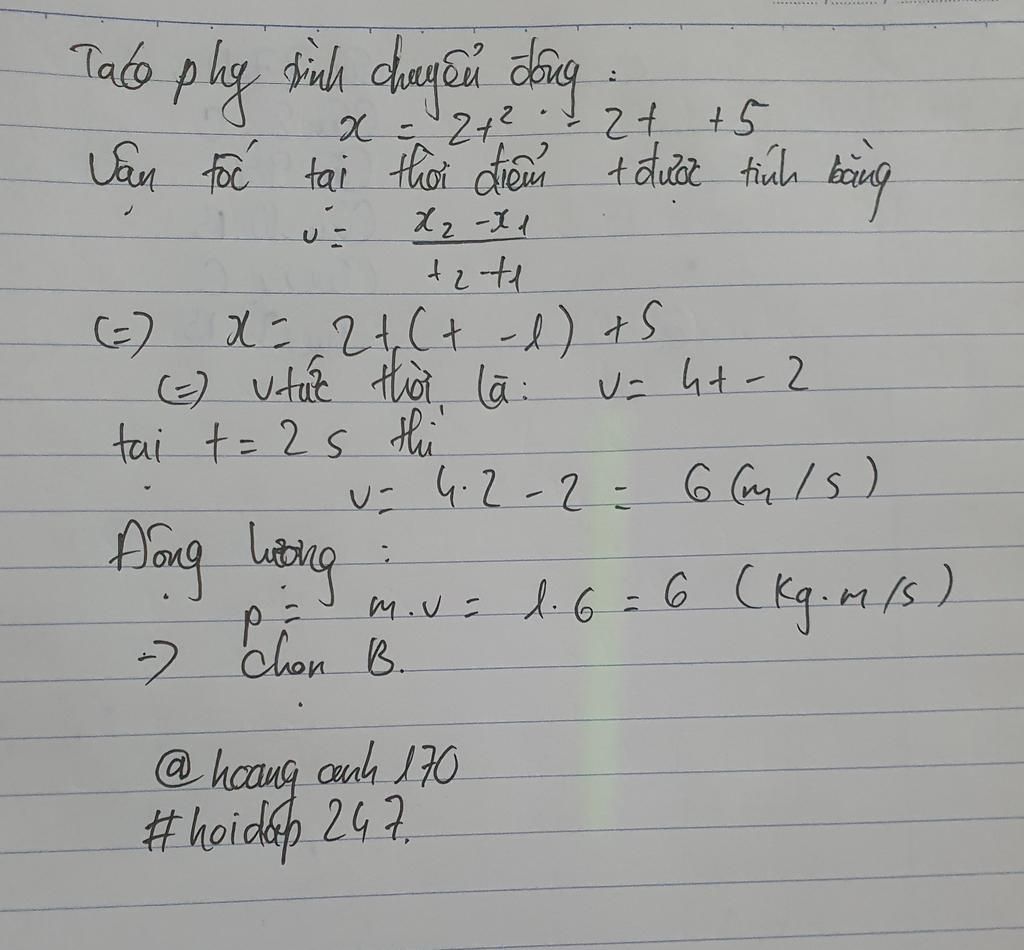 Ta có phg trình chuyển động :
x = 2t² - 2t + 5
Vận tốc tại thời điểm t được tính bằng
v = x2 - x1 / t2 - t1
(=) x = 2t(t - 1) + 5
(=) v tức thời là: v = 4t - 2
tại t = 2 s thì
v = 4.2 - 2 = 6 (m/s)
Động lượng :
p = m.v = 1.6 = 6 (kg.m/s)
-> Chọn B.
@hoang anh 170
#hoidáp 247.